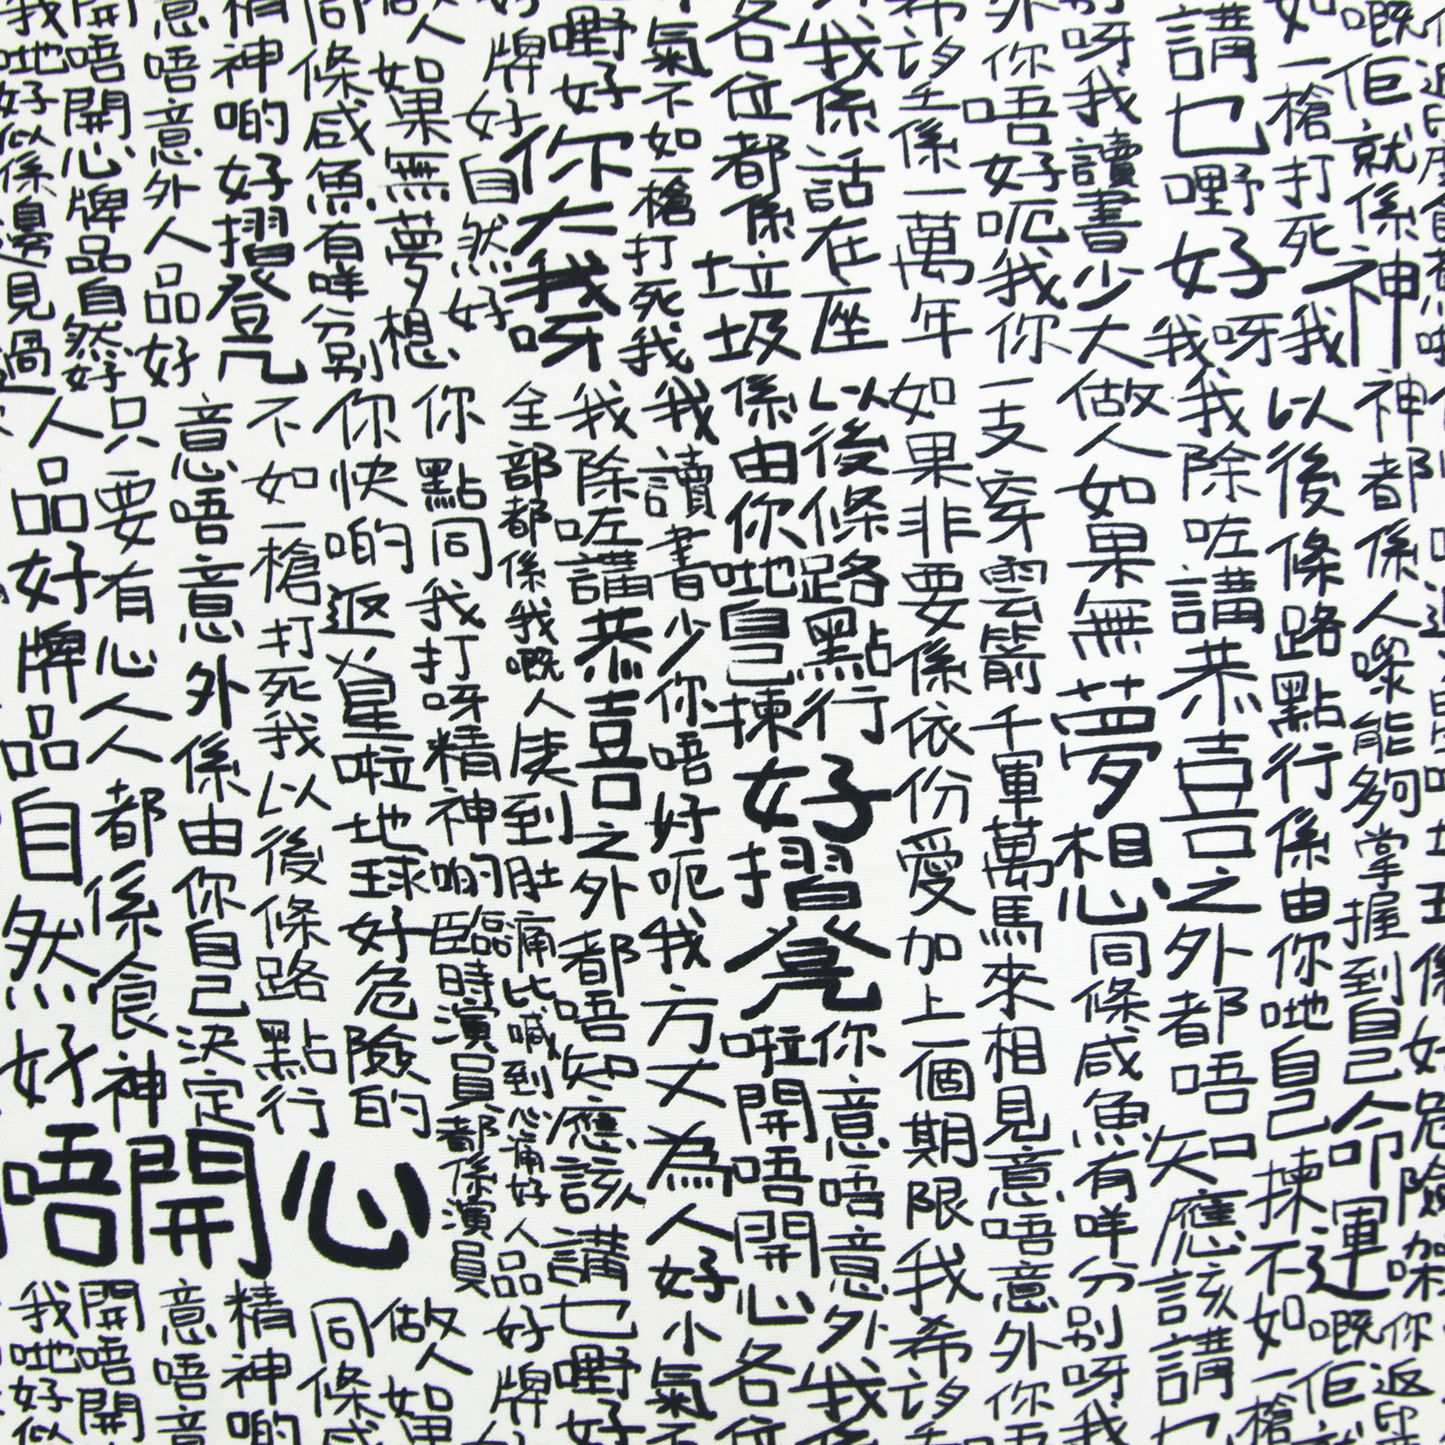 神都係人嚟能夠掌握到自己命運
以後條路點行係由你哋自己揀不如一槍打死我
我除咗講恭喜之外都唔知應該講乜嘢好呀我
做人如果無夢想同條咸魚有咩分別呀我讀書少大
一支穿雲箭千軍萬馬來相見意唔意外你唔好呃我你
如果非要係依份愛加上個期限我希望係一萬年
以後條路點行
你意唔意外我係話在座
係由你哋自己揀
好摺凳
啦開唔開心各位都係垃圾
我讀書少你唔好呃我方丈為人好小氣不如一槍打死我
我除咗講恭喜之外都唔知應該講乜嘢好
你大我呀
全部都係我嘅人
到肚痛比喊到心痛好人品好牌好自然好
你點同我打呀精神啲臨時演員都係演員
做人如果無夢想
你快啲返
星啦地球好危險的
同條咸魚有咩分別
不如一槍打死我以後條路點行
精神啲好摺登几
意唔意外係由你自己決定
意唔意外人品好
只要有心人人都係食神
開唔開心牌品自然好
人品好牌品自然好
唔開心
我哋好似係邊見過